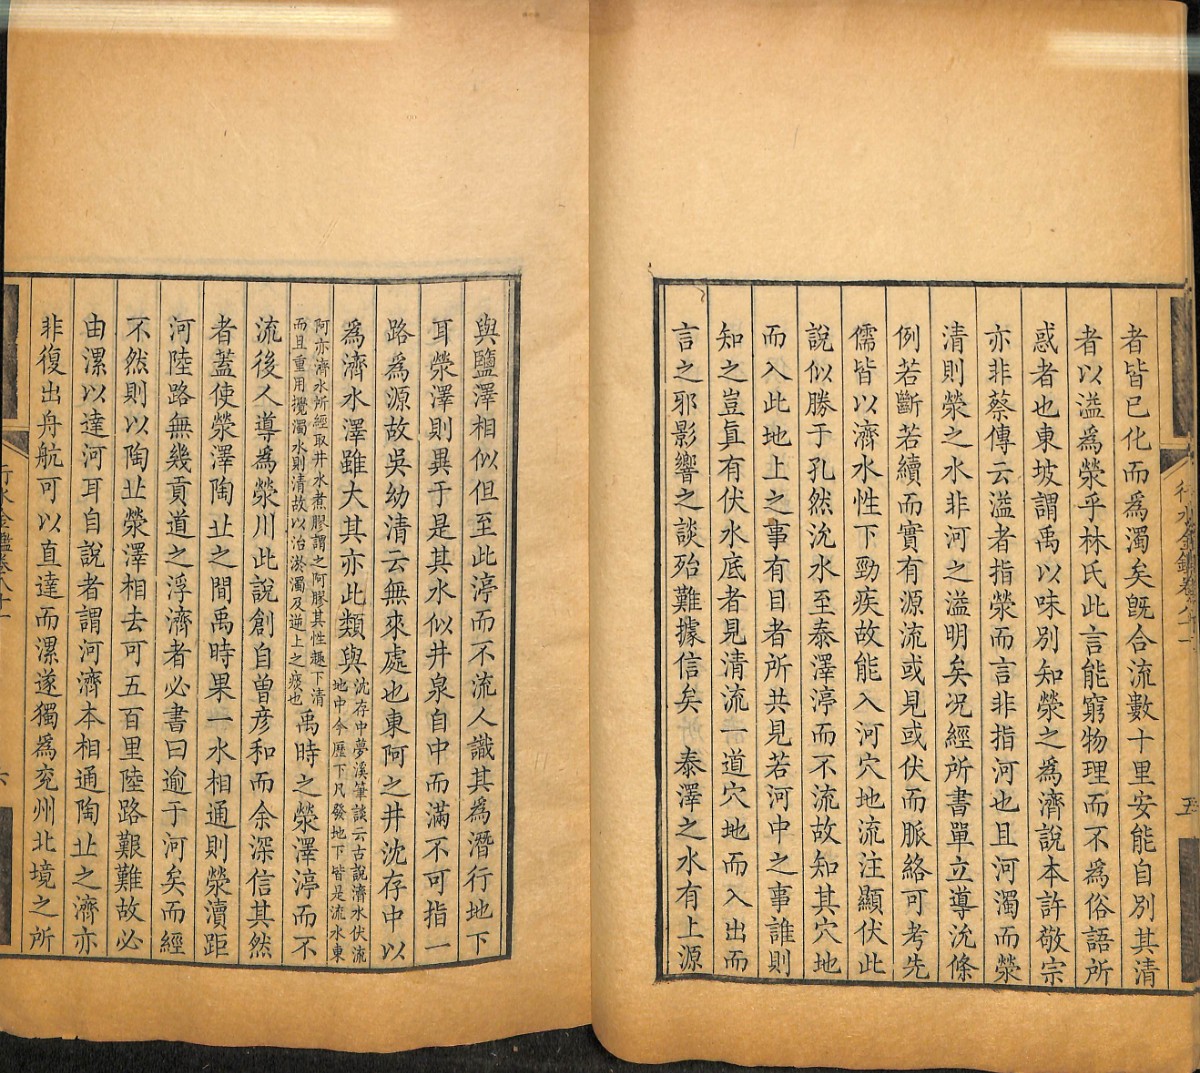 者皆已化而爲濁矣旣合流數十里安能自別其清
者以溢爲滎乎林氏此言能窮物理而不爲俗語所
惑者也東坡謂禹以味別知滎之爲濟說本許敬宗
亦非蔡傳云溢者指滎而言非指河也且河濁而滎
清則滎之水非河之溢明矣况經所書單立導沇條
例若斷若續而實有源流或見或伏而脈絡可考先
儒皆以濟水性下勁疾故能入河穴地流注顯伏此
說似勝于孔然沇水至泰澤渟而不流故知其穴地
而入此地上之事有目者所共見若河中之事誰則
知之豈眞有伏水底者見清流一道穴地而入出而
言之邪影響之談殆難據信矣 泰澤之水有上源
五
與鹽澤相似但至此渟而不流人識其爲潛行地下
耳滎澤則異于是其水似井泉自中而滿不可指一
路爲源故吳幼清云無來處也東阿之井沈存中以
爲濟水澤雖大其亦此類與沈存中夢溪筆談云古說濟水伏流
地中今歷下凡發地下皆是流水東
阿亦濟水所經取井水煮膠謂之阿膠其性趣下清
而且重用攪濁水則清故以治淤濁及逆上之痰也禹時之滎澤渟而不
流後人導爲滎川此說創自曾彦和而余深信其然
者蓋使滎澤陶丠之間禹時果一水相通則滎瀆距
河陸路無幾貢道之浮濟者必書曰逾于河矣而經
不然則以陶丠滎澤相去可五百里陸路艱難故必
由漯以達河耳自說者謂河濟本相通陶丠之濟亦
非復出舟航可以直達而漯遂獨爲兖州北境之所
行水金鑑卷八十一
六